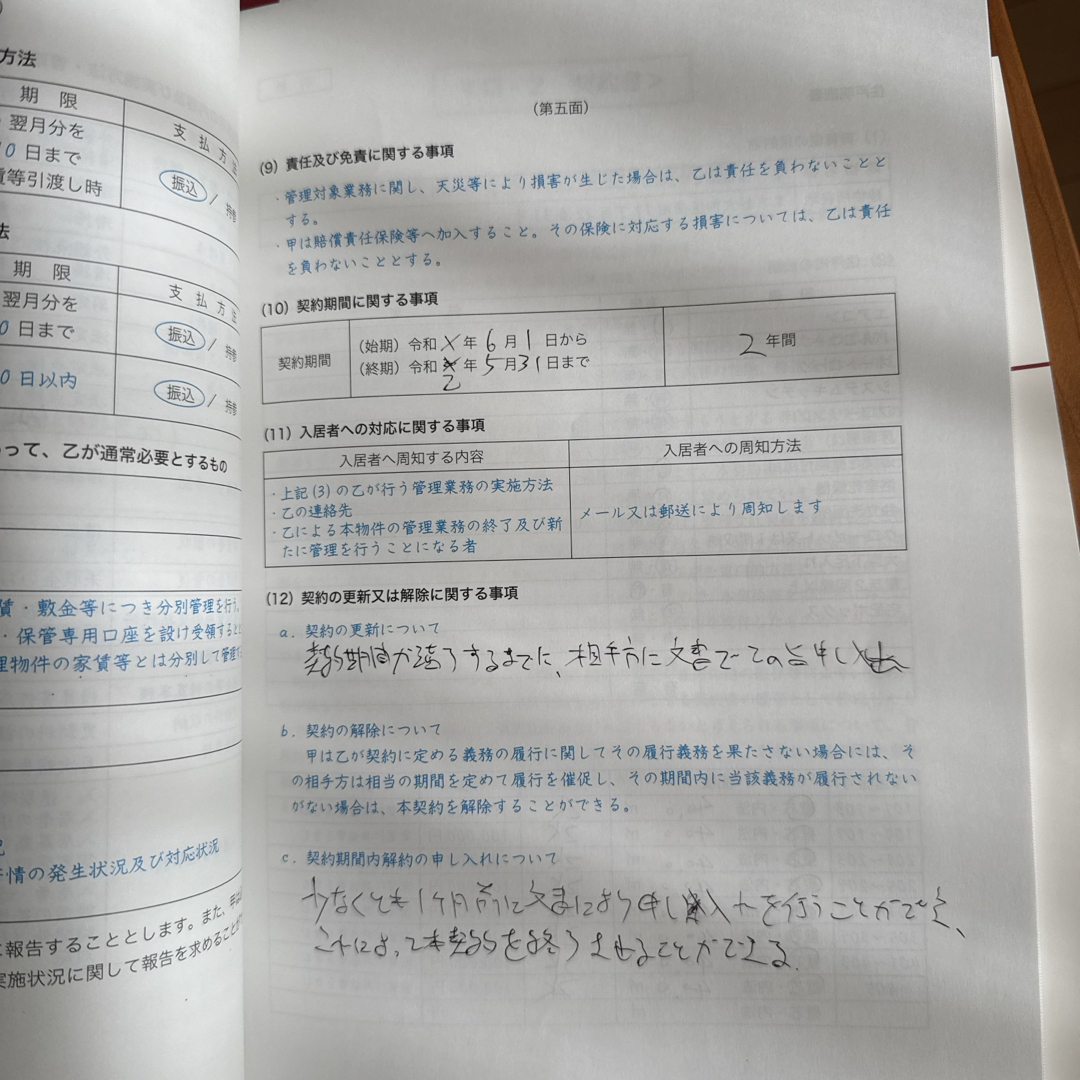 方法
期 限
支払方法
翌月分を
0日まで
賃等引渡し時
振込 / 持参
法
期 限
支払方法
翌月分を
0日まで
振込 / 持参
0日以内
振込 / 持参
って、乙が通常必要とするもの
賃・敷金等につき分別管理を行う。
・保管専用口座を設け受領すると
理物件の家賃等とは分別して管理
況
苦情の発生状況及び対応状況
に報告することとします。また、甲は
実施状況に関して報告を求めることが
（第五面）
(9) 責任及び免責に関する事項
・管理対象業務に関し、天災等により損害が生じた場合は、乙は責任を負わないことと
する。
・甲は賠償責任保険等へ加入すること。その保険に対応する損害については、乙は責任
を負わないこととする。
(10) 契約期間に関する事項
契約期間
（始期）令和X年6月1日から
（終期）令和 年5月31日まで
Z
2年間
(11) 入居者への対応に関する事項
入居者へ周知する内容
入居者への周知方法
・上記(3)の乙が行う管理業務の実施方法
・乙の連絡先
・乙による本物件の管理業務の終了及び新
たに管理を行うことになる者
メール又は郵送により周知します
(12) 契約の更新又は解除に関する事項
a. 契約の更新について
契約期間が満了するまでに、相手方に文書でその旨申し出
b. 契約の解除について
甲は乙が契約に定める義務の履行に関してその履行義務を果たさない場合には、そ
の相手方は相当の期間を定めて履行を催促し、その期間内に当該義務が履行されない
がない場合は、本契約を解除することができる。
c. 契約期間内解約の申し入れについて
少なくとも1ケ月前に文書により申し入れを行うことができ、
これによって本契約を終了させることができる。